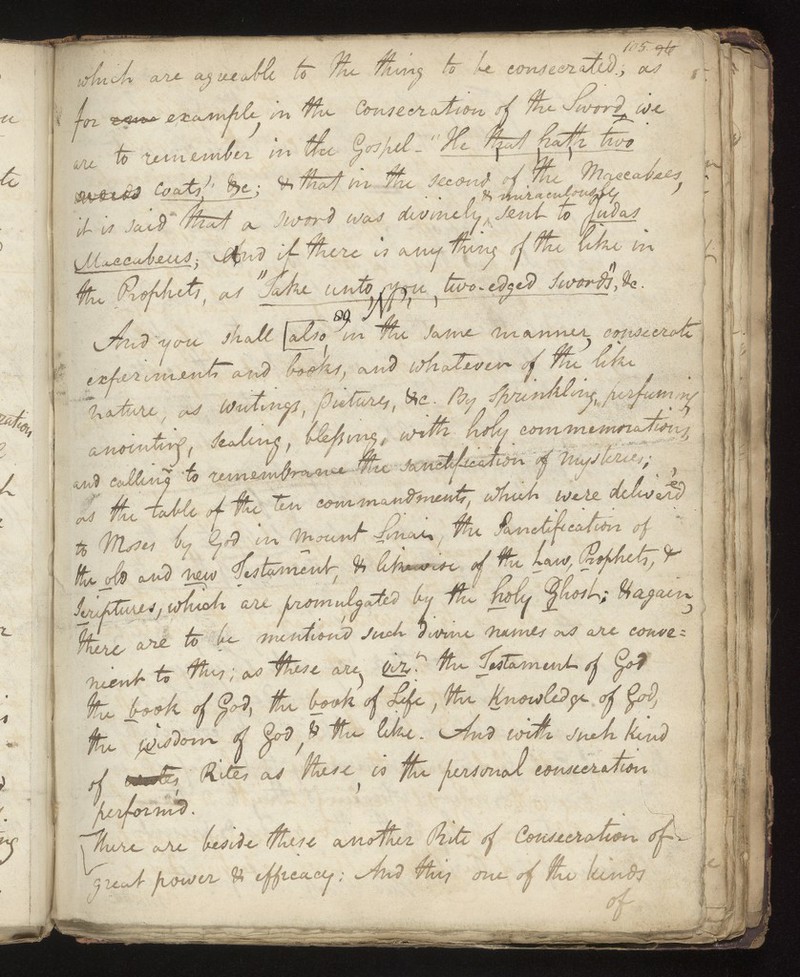 105. 96
which are agreeable to the thing to be consecrated; as
for example, in the Consecration of the Sword, we
are to remember in the Gospel - "He that hath two
coats" &c; & that in the second of the Maccabees,
it is said that a sword was divinely & miraculously sent to Judas
Maccabeus; And if there is any thing of the like in
the Prophets, as "Take unto you two-edged swords", &c.
And you shall also in the same manner consecrate
experiments and books, and whatever of the like
nature, as writings, pictures, &c. By sprinkling, perfuming,
anointing, sealing, blessing, with holy commemorations,
and calling to remembrance the sanctification of mysteries;
as the table of the ten commandments, which were deliver'd
to Moses by God in mount Sinai, the Sanctification of
the old and new Testament, & likewise of the Law, Prophets, &
Scriptures, which are promulgated by the holy Ghost: & again,
there are to be mention'd such divine names as are conve=
nient to this; as these are, viz. the Testament of God
the book of God, the book of Life, the Knowledge of God,
the wisdom of God, & the like. And with such kind
of Rites as these, is the personal consecration
perform'd.
There are beside these another Rite of Consecration of
great power & efficacy: And this one of the kinds
of